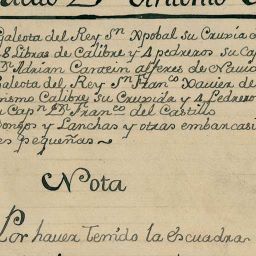 Galeota del Rey Sn. Xpobal su Cruxia d
8 Libras de Calibre y 4 pedreros su Cap
Dn. Adrian Cantein alferes de Navio
Galeota del Rey Sn. Franco. Xavier de
mismo Calibre su Cruxida y 4 Pedrero
u Capn. Dn. Franco. del Castillo
Pongos y Lanchas y otras embarcasi
es pequeñas
Nota
Por hauer Tenido la escuadra